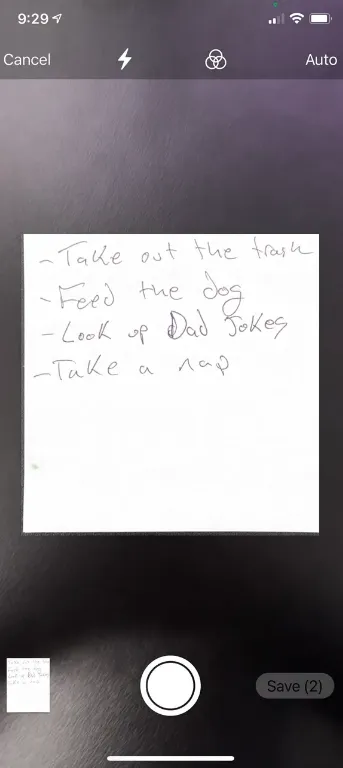 9:29
Cancel
Auto
- Take out the trash
- Feed the dog
- Look up Dad Jokes
- Take a nap
Save (2)